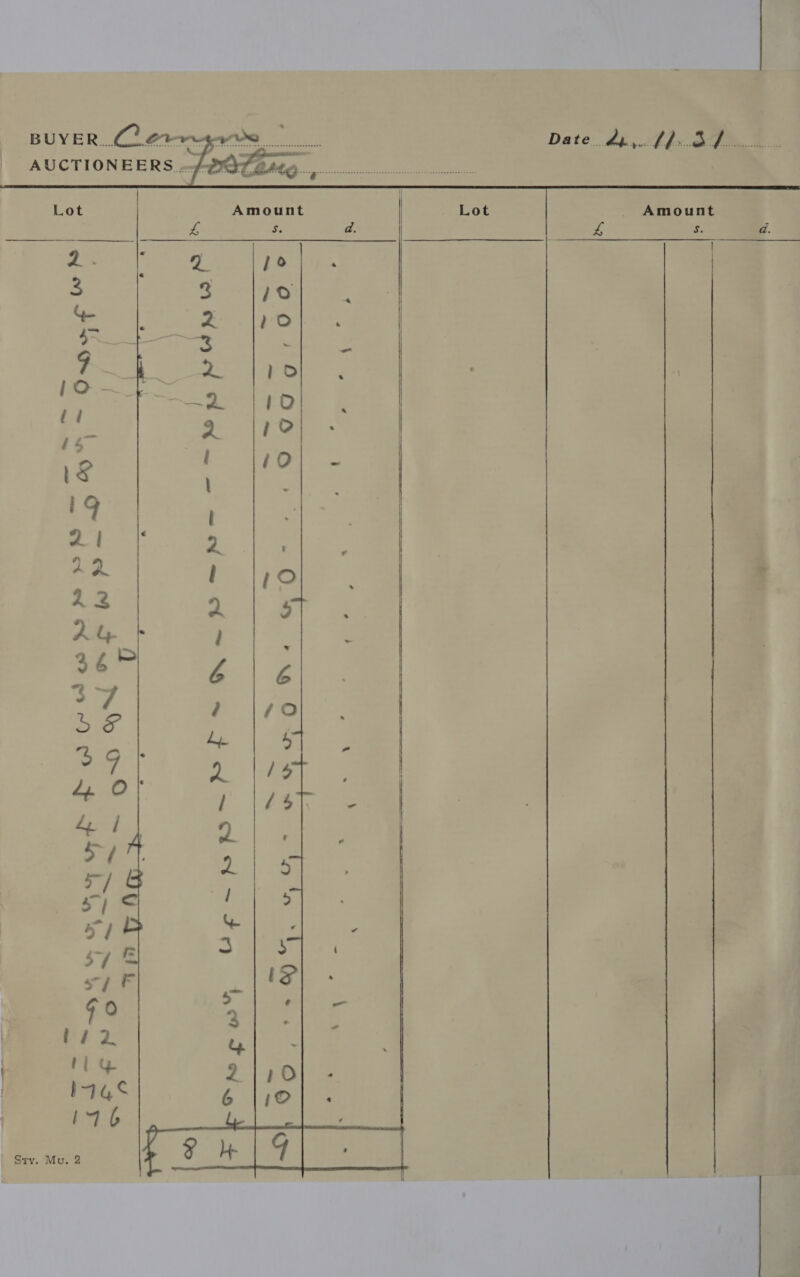 BUYER
Date 4.11.31
AUCTIONEERS
Lot Amount Lot Amount
£ s. d. £ s. d.
2. 2 10 .
3 3 10 .
4 2 10 .
5 3 - -
9 2 10 .
10 2 10 .
11 2 10 .
15 1 10 -
18 1 - .
19 1 . .
21 2 . .
22 1 10 .
23 2 5 .
24 1 . -
36D 6 6 .
37 1 10 .
38 4 5 -
39 2 15 .
40 1 15 -
41 2 . .
51A 2 5 .
51B 1 5 .
51C 4 . -
51D 3 5 .
51E 18 .
51F 5 . -
90 3 . -
112 4 - .
114 2 10 .
174C 6 10 .
176 4 - .
£ 84 9 .
Sty. Mu. 2